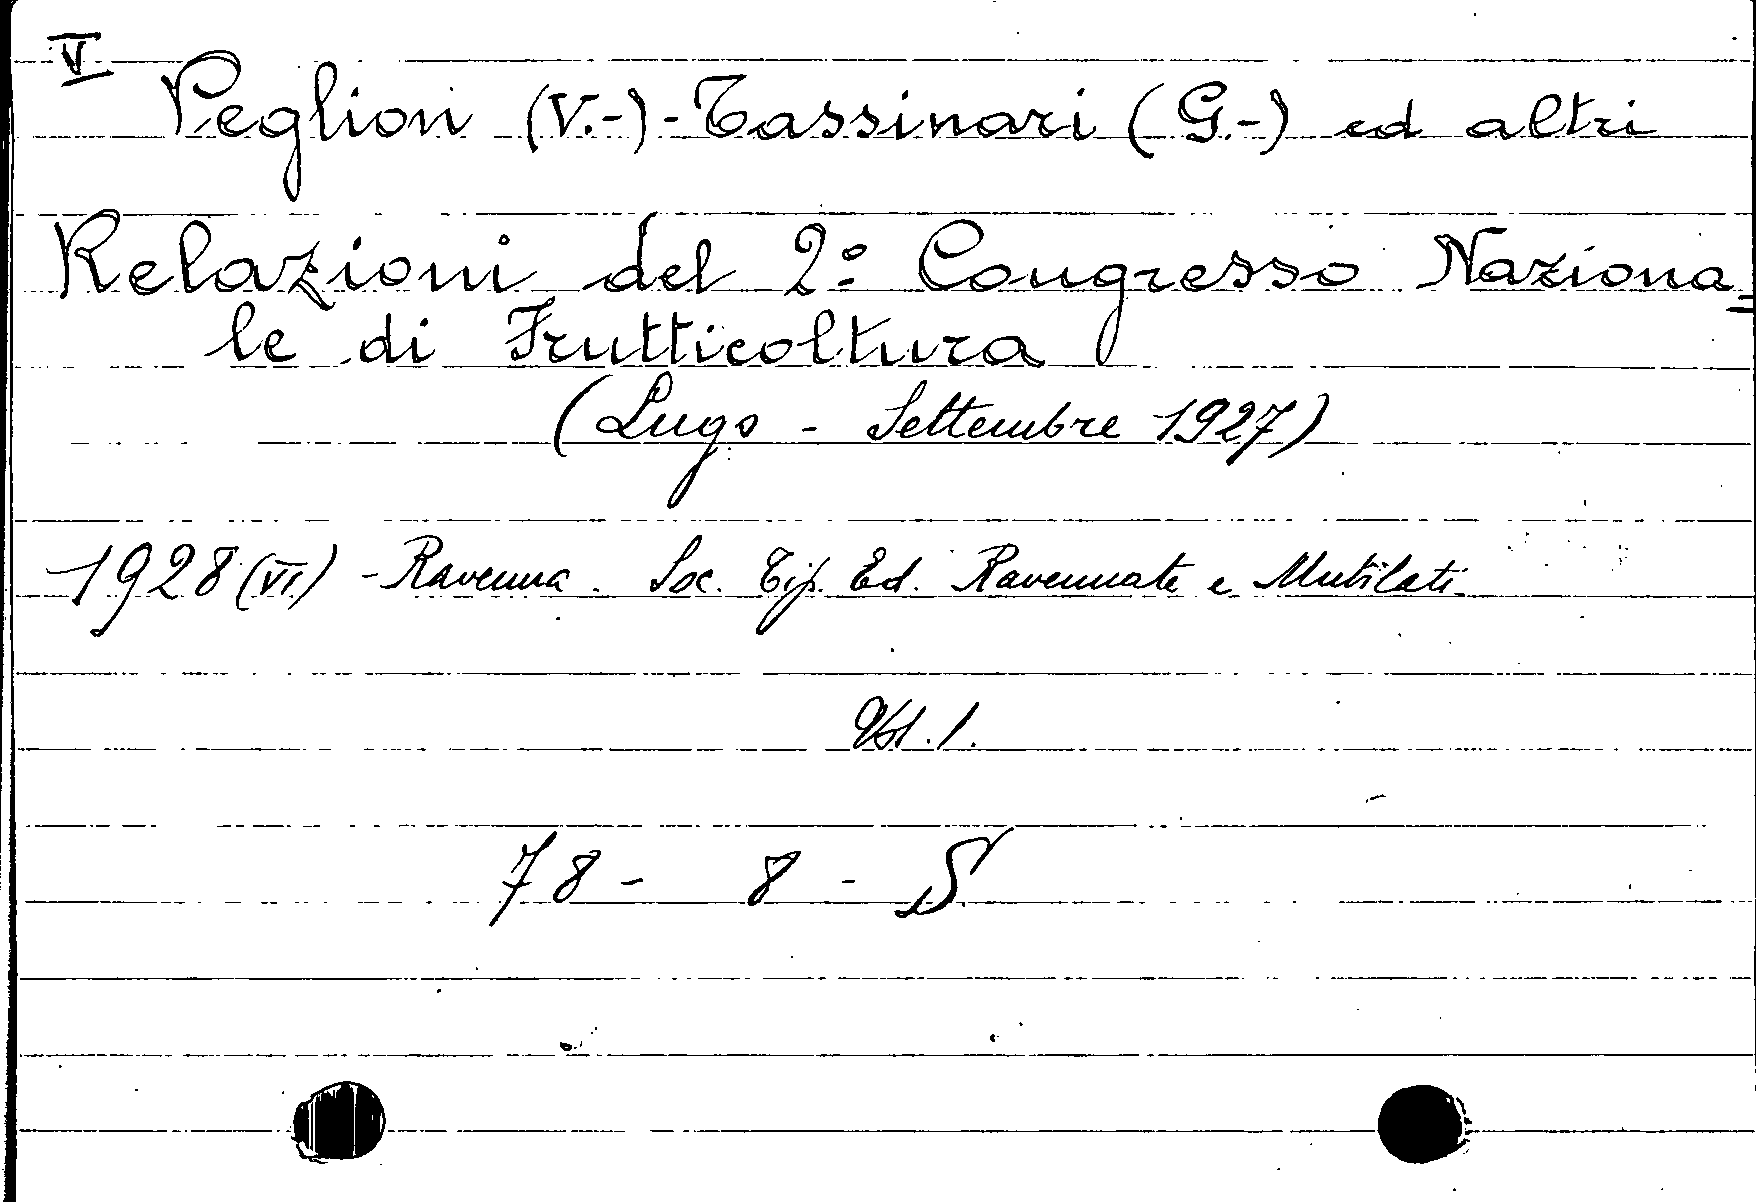 V
Peglion (V.-)-Tassinari (G.-) ed altri
Relazioni del 2º Congresso Naziona=
le di Frutticoltura
(Lugo - Settembre 1927)
1928 (VI) - Ravenna. Soc. Tip. Ed. Ravennate e Mutilati.
Vol. 1.
78 - 8 - S